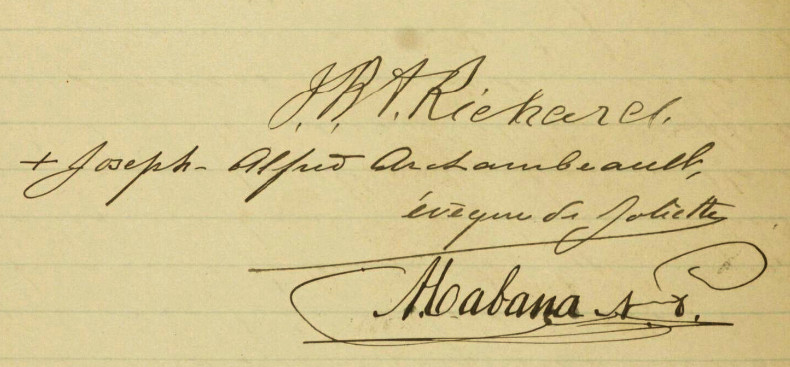 J. B. A. Richard.
+ Joseph-Alfred Archambeault,
évêque de Joliette
A. Cabana N. P.